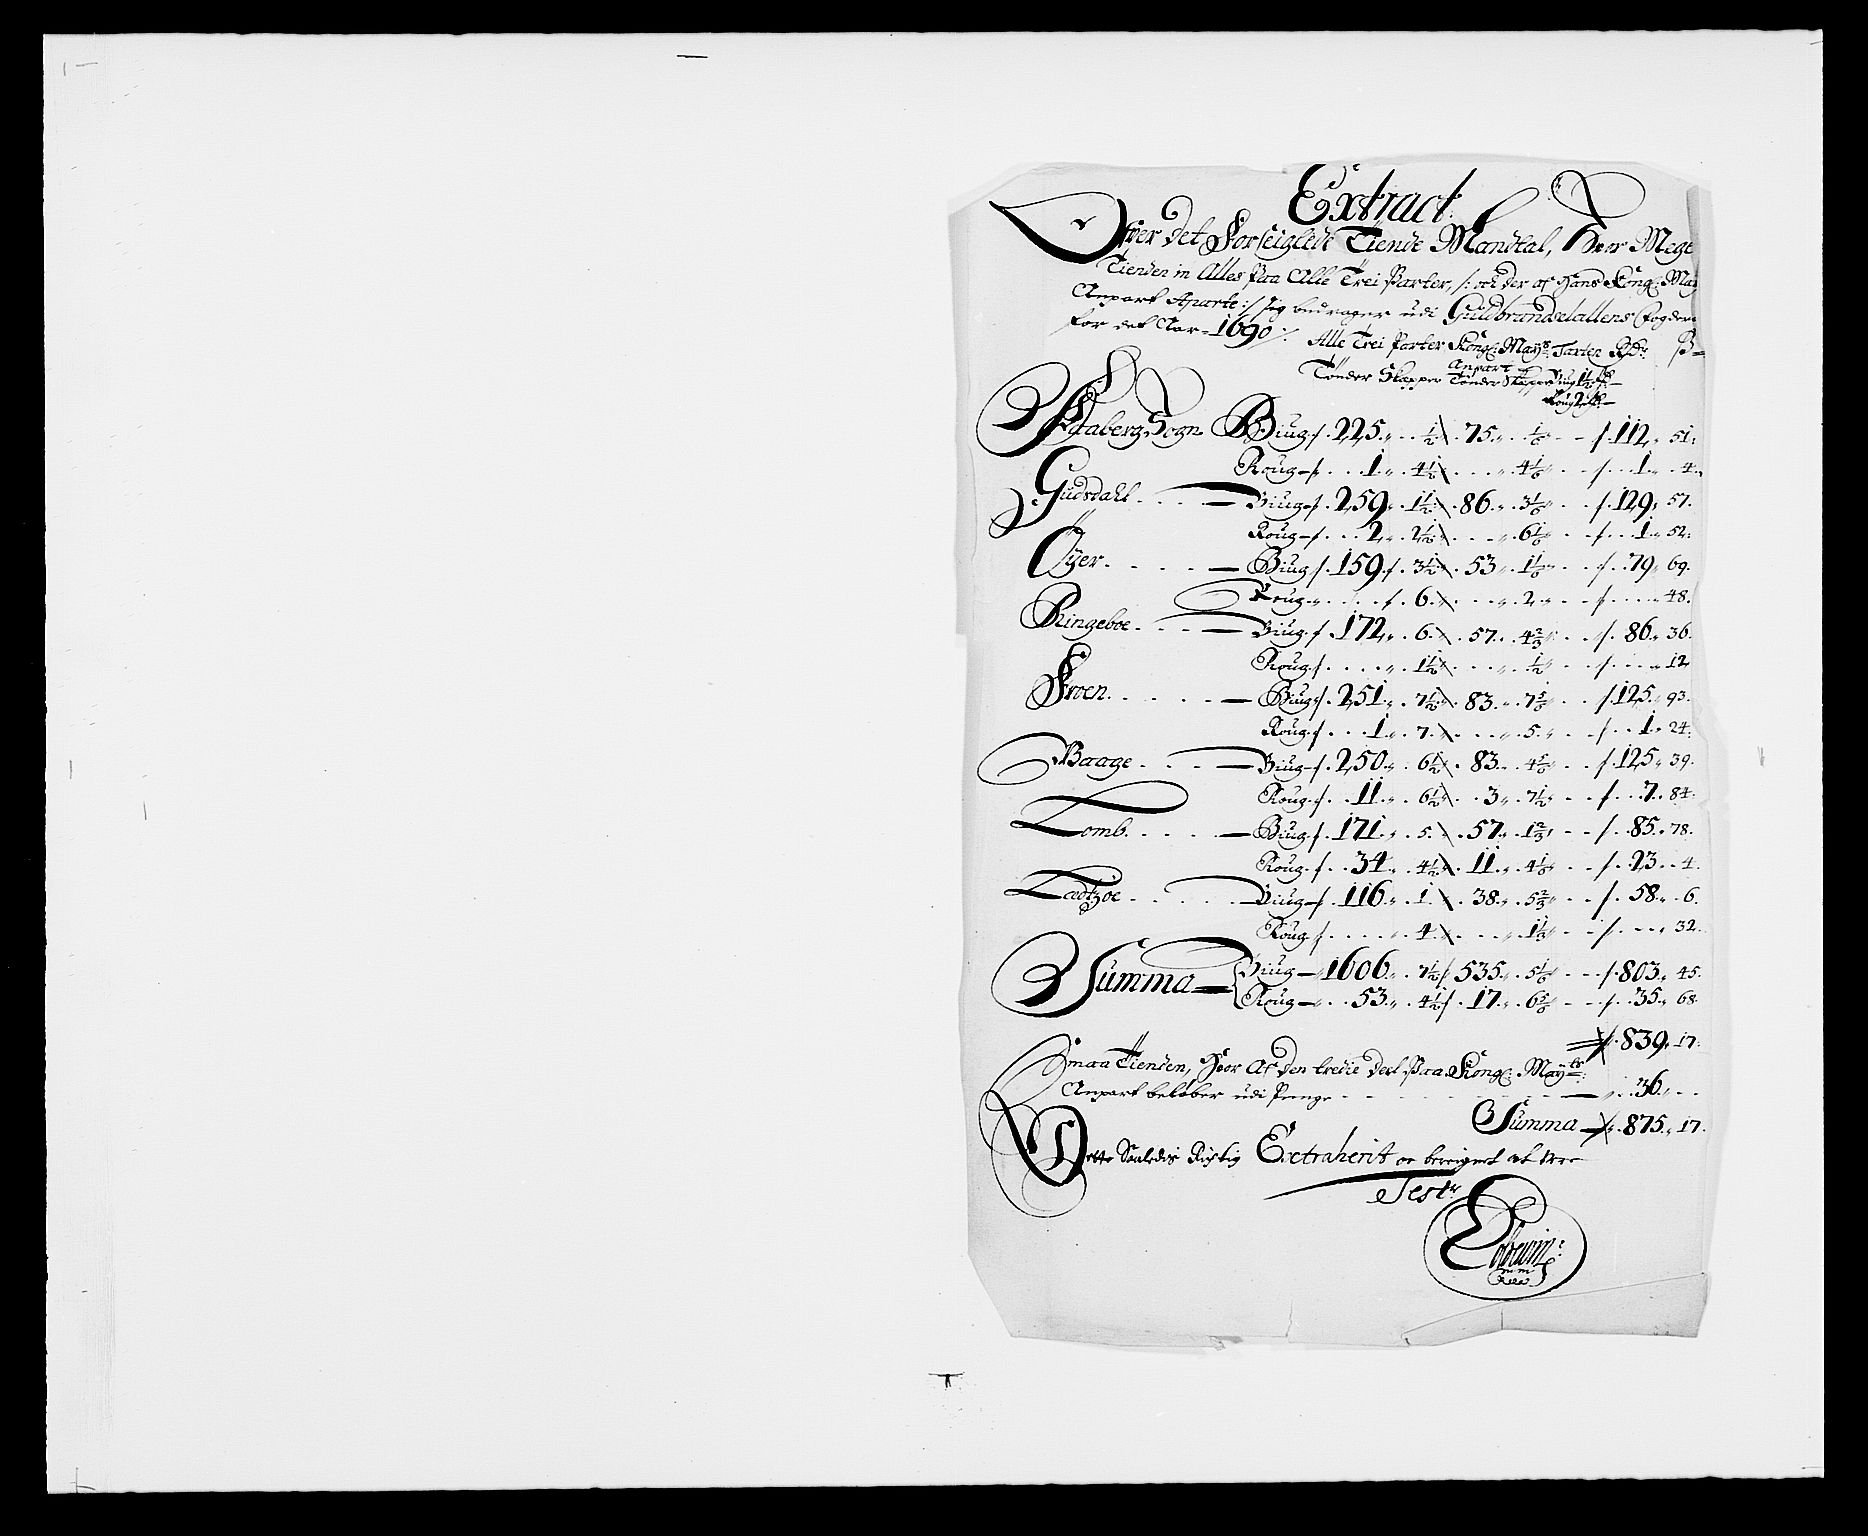 Extract
Ofver det Forseiglede Tiende Mandtal, Hvor Mege
Tienden in Alles paa Alle Trei Parter, /: och der af Hans Kongl: May
Anpart Aparte :/ sig bedrager udi Guldbrandsdallens fogderi
for det Aar 1690 /:
Alle Trei Parter Kongl: Mayts: Taxten Rdr: β
Tønder Skepper Anpart Tønder Skepper Biug 1 1/2
Roug 2
Faaberg Sogn Biug 225 1/2 75 1/6 112 51
Roug 1 4 1/2 4 1/6 1 4
Gudsdahl Biug 259 1 1/2 86 3 1/6 129 57
Roug 2 2 1/2 6 1/6 1 52
Öyer Biug 159 3 1/2 53 1 1/6 79 69
Roug 6 2 48
Ringeboe Biug 172 6 57 4 2/3 86 36
Roug 1 1/2 1/2 12
Froen Biug 251 7 1/2 83 7 5/6 125 93
Roug 1 7 5 1 24
Waage Biug 250 6 1/2 83 4 5/6 125 39
Roug 11 6 1/2 3 7 1/2 7 84
Lomb Biug 171 5 57 1 2/3 85 78
Roug 34 4 1/2 11 4 1/6 23 4
Ladtzoe Biug 116 1 38 5 2/3 58 6
Roug 4 1 1/3 32
Summa Biug 1606 7 1/2 535 5 1/6 803 45
Roug 53 4 1/2 17 6 5/6 35 68
839 17
Smaa Tienden, Hvor Af den tredie deel paa Kongl: Mayts:
Anpart beløber udi Penge 36
Summa 875 17
Dette Saaledis Rigtig Extraherit oc beregnet at være
Test: